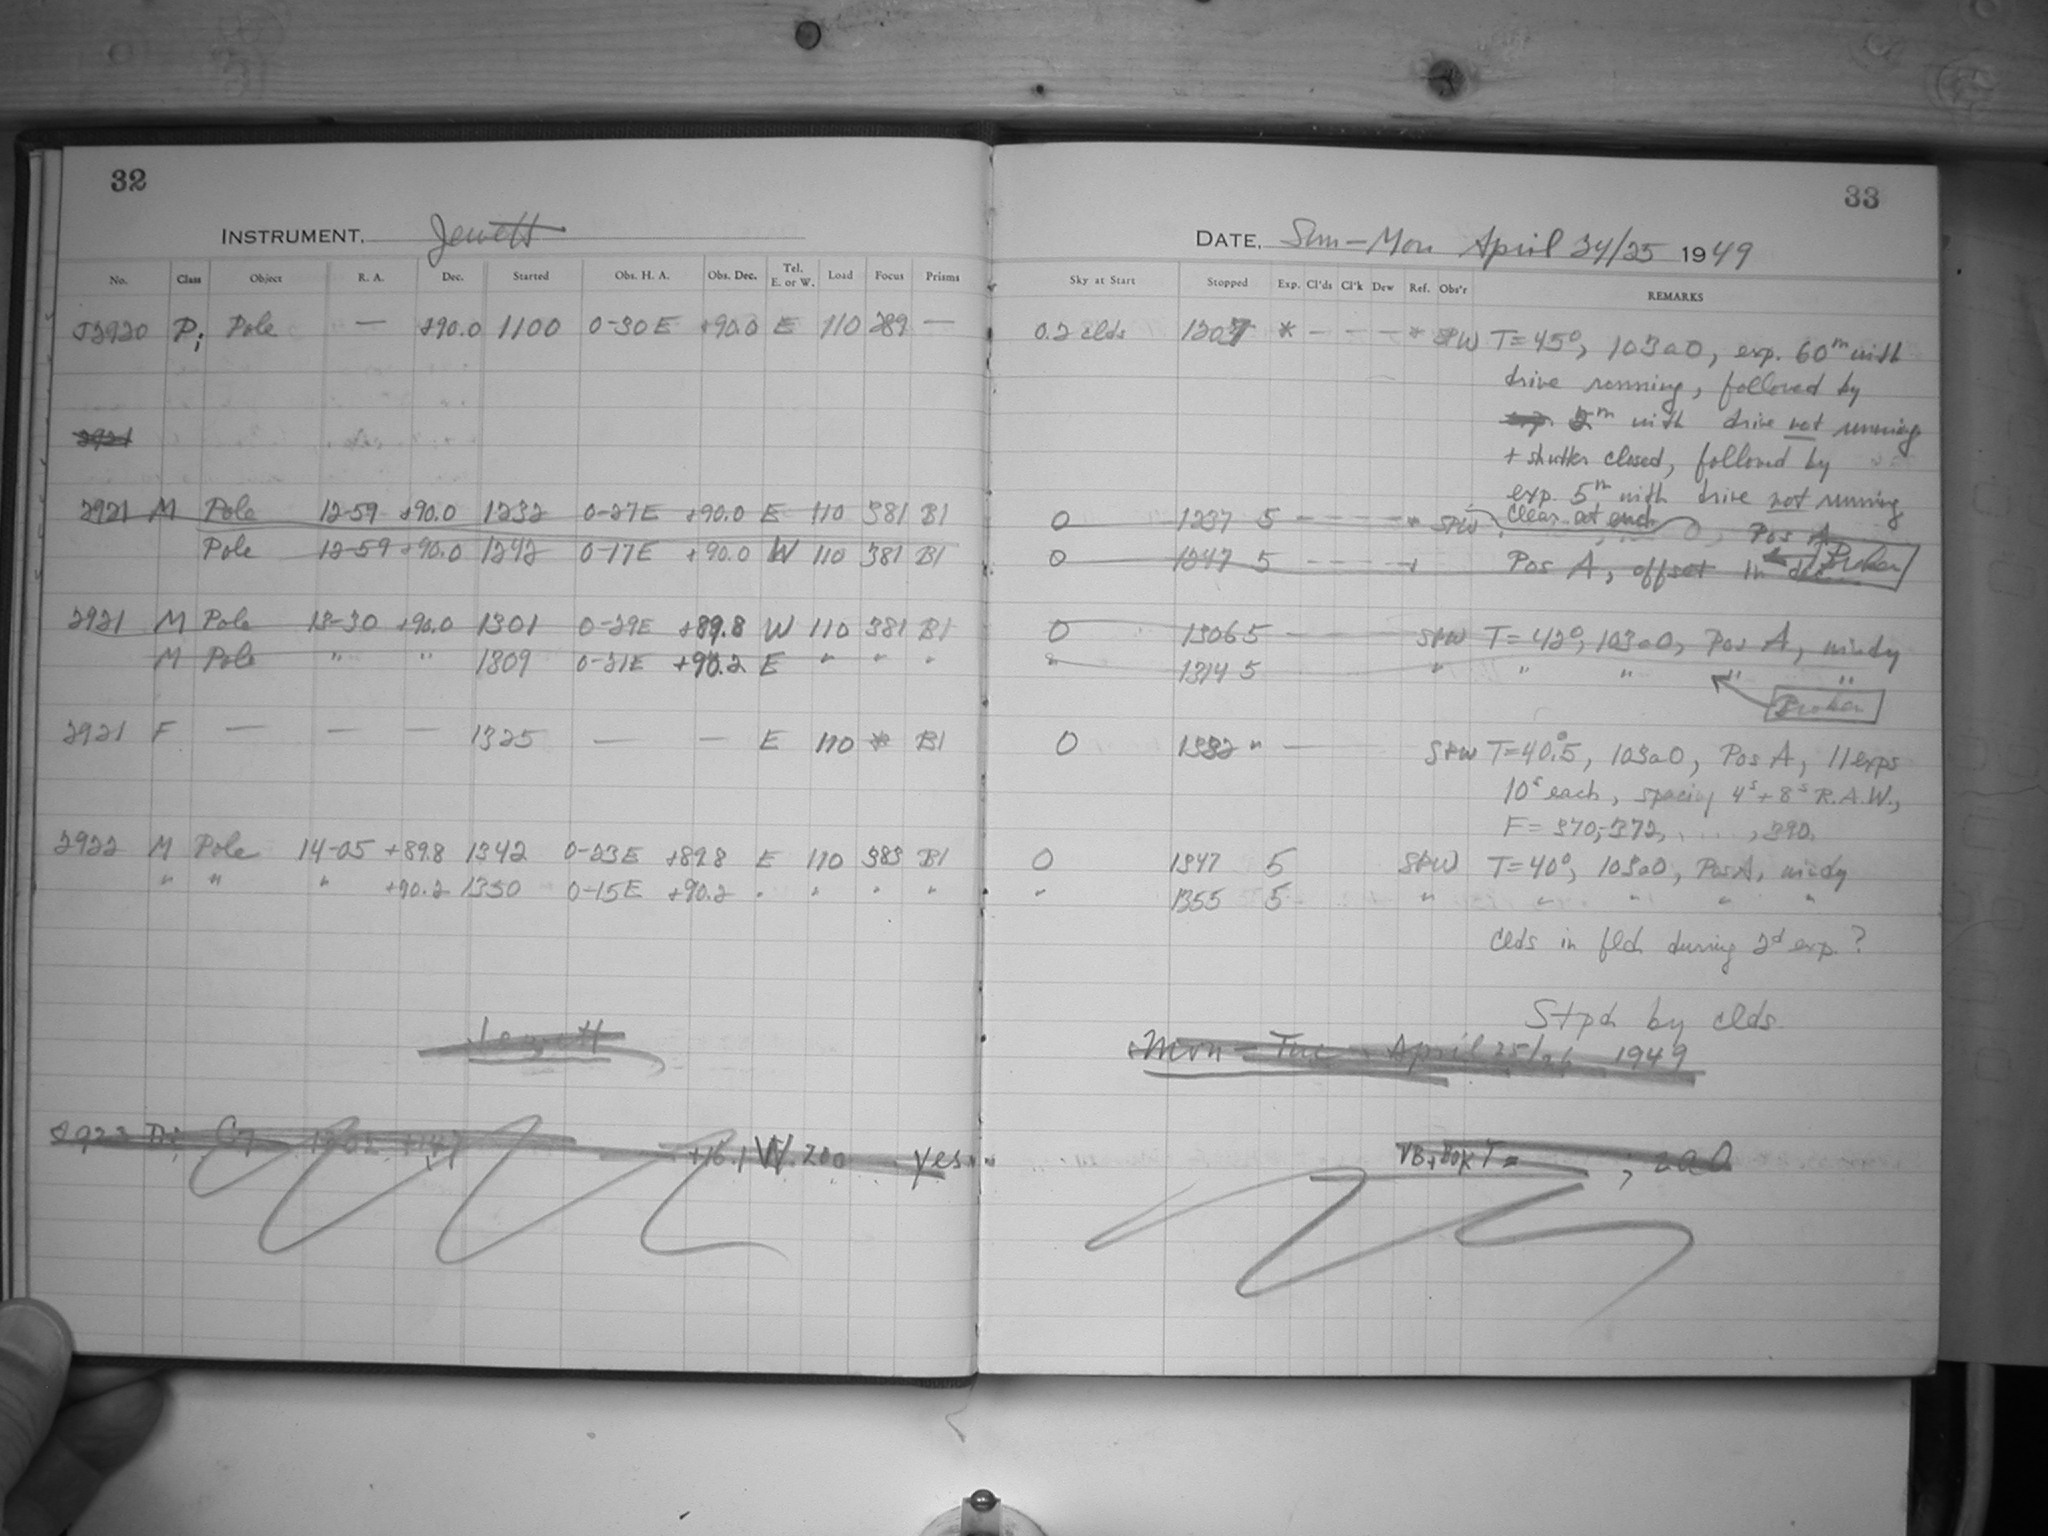 32
INSTRUMENT. Jewett
No. Class Object R. A. Dec. Started Obs. H. A. Obs. Dec. Tel. E. or W. Load Focus Prisms
J2920 P; Pole — +90.0 1100 0-30E +90.0 E 110 389 —
2921
2921 M Pole 12-59 +90.0 1232 0-27E +90.0 E 110 381 B1
Pole 12-59 +90.0 1242 0-17E +90.0 W 110 381 B1
2921 M Pole 13-30 +90.0 1301 0-29E +89.8 W 110 381 B1
M Pole " " 1309 0-21E +90.2 E " " "
2921 F — — — 1325 — — E 110 * B1
2922 M Pole 14-05 +89.8 1342 0-23E +89.8 E 110 383 B1
" " " +90.2 1350 0-15E +90.2 " " " "
Jewett
2923 +16.1 W 200 yes
33
DATE. Sun-Mon April 24/25 1949
Sky at Start Stopped Exp. Cl'ds Cl'k Dew Ref. Obs'r REMARKS
0.2 clds 1207 * — — — * SPW T=45°, 103aO, exp. 60m with
drive running, followed by
exp. 2m with drive not running
+ shutter closed, followed by
exp. 5m with drive not running
Clear at end
0 1237 5 — — — * SPW Pos A
0 1247 5 — — — Pos A, offset in dec Broken
0 1306 5 — — SPW T=42°, 103aO, Pos A, windy
" 1314 5 " " " " "
Broken
0 1332 " — SPW T=40.5°, 103aO, Pos A, 11 exps
10s each, spacing 4s+8s R.A.W.,
F=370, 372, ...., 390.
0 1347 5 SPW T=40°, 103aO, Pos A, windy
" 1355 5 " " " " "
Clds in fld during 2d exp.?
Stpd by clds
Mon-Tue April 25/26 1949
T= ; 2aO